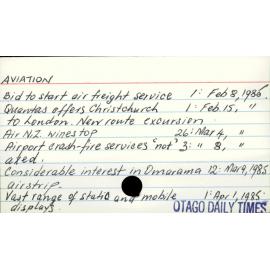 AVIATION
Bid to start air freight service 1: Feb 8, 1985
Quantas offers Christchurch 1: Feb. 15, "
to London. New route excursion
Air N.Z. wines top 26: Mar 4, "
Airport crash-fire services 'not' 3: " 8, "
axed.
Considerable interest in Omarama 12: Mar 9, 1985
airstrip.
Vast range of static and mobile 1: Apr 1, 1985
displays.
OTAGO DAILY TIMES